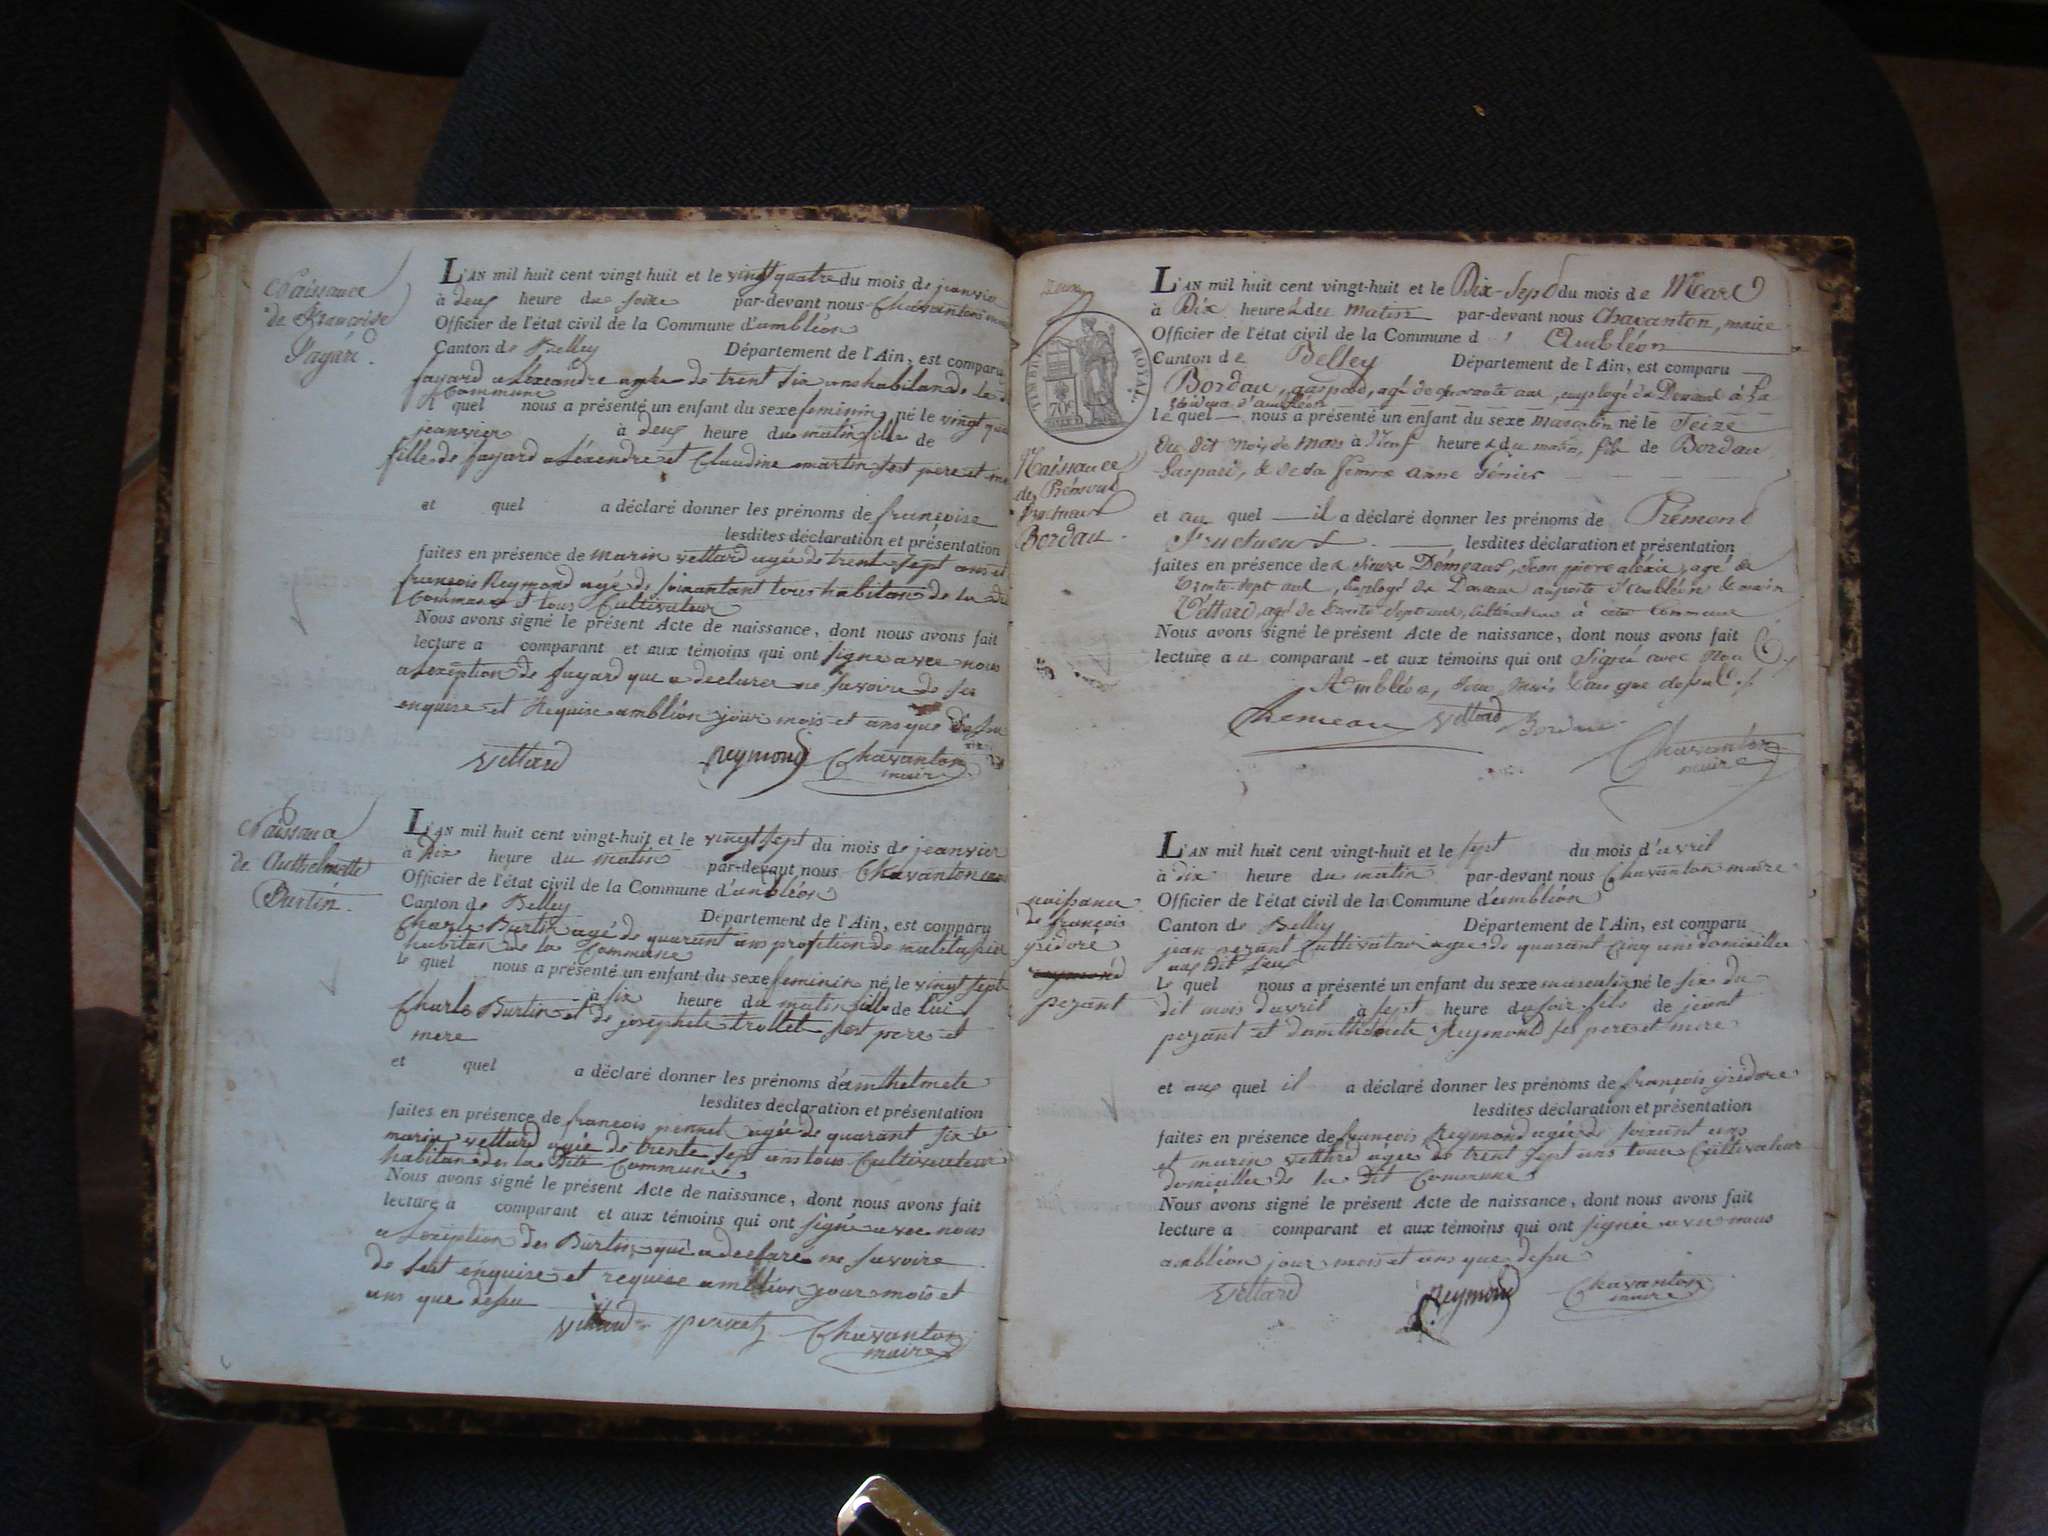 Naissance
de Francoise
Fayard.
L'AN mil huit cent vingt huit et le vingt quatre du mois de jeanvier
à deux heure du soire par-devant nous Chavanton
Officier de l'état civil de la Commune d'ambléon
Canton de Belley Département de l'Ain, est comparu
fayard aléxeandre agée de trent six ans habitan de la
Commune
le quel nous a présenté un enfant du sexe feminin né le vingt
jeanvier à deux heure du matin fille de
fille de fayard aléxendre et Claudine martin pere et
et quel a déclaré donner les prénoms de francoise
lesdites déclaration et présentation
faites en présence de marin vettard agée de trent sept ans et
francois Reymond agé de soixantant trois habitan de la
Commune tous Cultivateur
Nous avons signé le présent Acte de naissance, dont nous avons fait
lecture a comparant et aux témoins qui ont signe avec nous
a lexeption de fayard que a declarer ne savoire de
enquise et Requise ambléon jour mois et ans que
vettard Reymond Chavanton
maire
Naissance
de Anthelmette
Burtin.
L'AN mil huit cent vingt-huit et le vingt sept du mois de jeanvier
à Dix heure du matin par-devant nous Chavanton
Officier de l'état civil de la Commune d'ambléon
Canton de Belley Département de l'Ain, est comparu
Charle Burtin agé de quarant ans profition de
habitan de la Commune
le quel nous a présenté un enfant du sexe feminin né le vingt sept
à six heure du matin fille de lui
Charle Burtin et de josephete trollet pere et
mere
et quel a déclaré donner les prénoms d'anthelmete
lesdites déclaration et présentation
faites en présence de francois pernet agée de quarant six
marin vettard agée de trente sept ans tous Cultivateur
habitan de la Dite Commune
Nous avons signé le présent Acte de naissance, dont nous avons fait
lecture a comparant et aux témoins qui ont signé avec nous
a lexéption de Burtin qui a declare ne savoire
de enquise et requise ambléon jour mois et
ans que
vettard pernet Chavanton
maire
TIMBRE ROYAL
70c
Naissance
de Prémont
Bordau.
L'AN mil huit cent vingt-huit et le Dix-Sept du mois de Mars
à Dix heure du matin par-devant nous Chavanton, maire
Officier de l'état civil de la Commune d' Ambléon
Canton de Belley Département de l'Ain, est comparu
Bordau, gaspard, agé de quarante ans, employé de Douane à la
d'ambléon
le quel nous a présenté un enfant du sexe masculin né le Seize
du dit mois de mars à Neuf heure du matin, fils de Bordau
Gaspard, & de sa femme anne Génier
et au quel il a déclaré donner les prénoms de Prémont
Fructueux lesdites déclaration et présentation
faites en présence de Sieurs Démeaux, Jean pierre aléxis, agé de
trente sept ans, Employé de Douane d'Ambléon & marin
Vettard, agé de trente sept ans, cultivateur à cette Commune
Nous avons signé le présent Acte de naissance, dont nous avons fait
lecture au comparant et aux témoins qui ont signé avec Nous
Ambléon, jour, mois & an que dessus.
Vettard Bordau
Chavanton
maire
naissance
de françois
Reymond
pezant
L'AN mil huit cent vingt-huit et le sept du mois d'avril
à dix heure du matin par-devant nous Chavanton maire
Officier de l'état civil de la Commune d'ambléon
Canton de Belley Département de l'Ain, est comparu
jean pezant Cultivateur agée de quarant cinq ans domiciller
au dit lieu
le quel nous a présenté un enfant du sexe masculin né le six du
dit mois davril à sept heure du soir fils de jeant
pezant et Reymond pere et mere
et aux quel il a déclaré donner les prénoms de françois
lesdites déclaration et présentation
faites en présence de françois Reymond agée de soixant ans
et marin vettard agée de trent sept ans tous Cultivateur
domiciller de la Dit Commune
Nous avons signé le présent Acte de naissance, dont nous avons fait
lecture a comparant et aux témoins qui ont signée avec nous
ambléon jour mois et ans que
Vettard Reymond Chavanton
maire